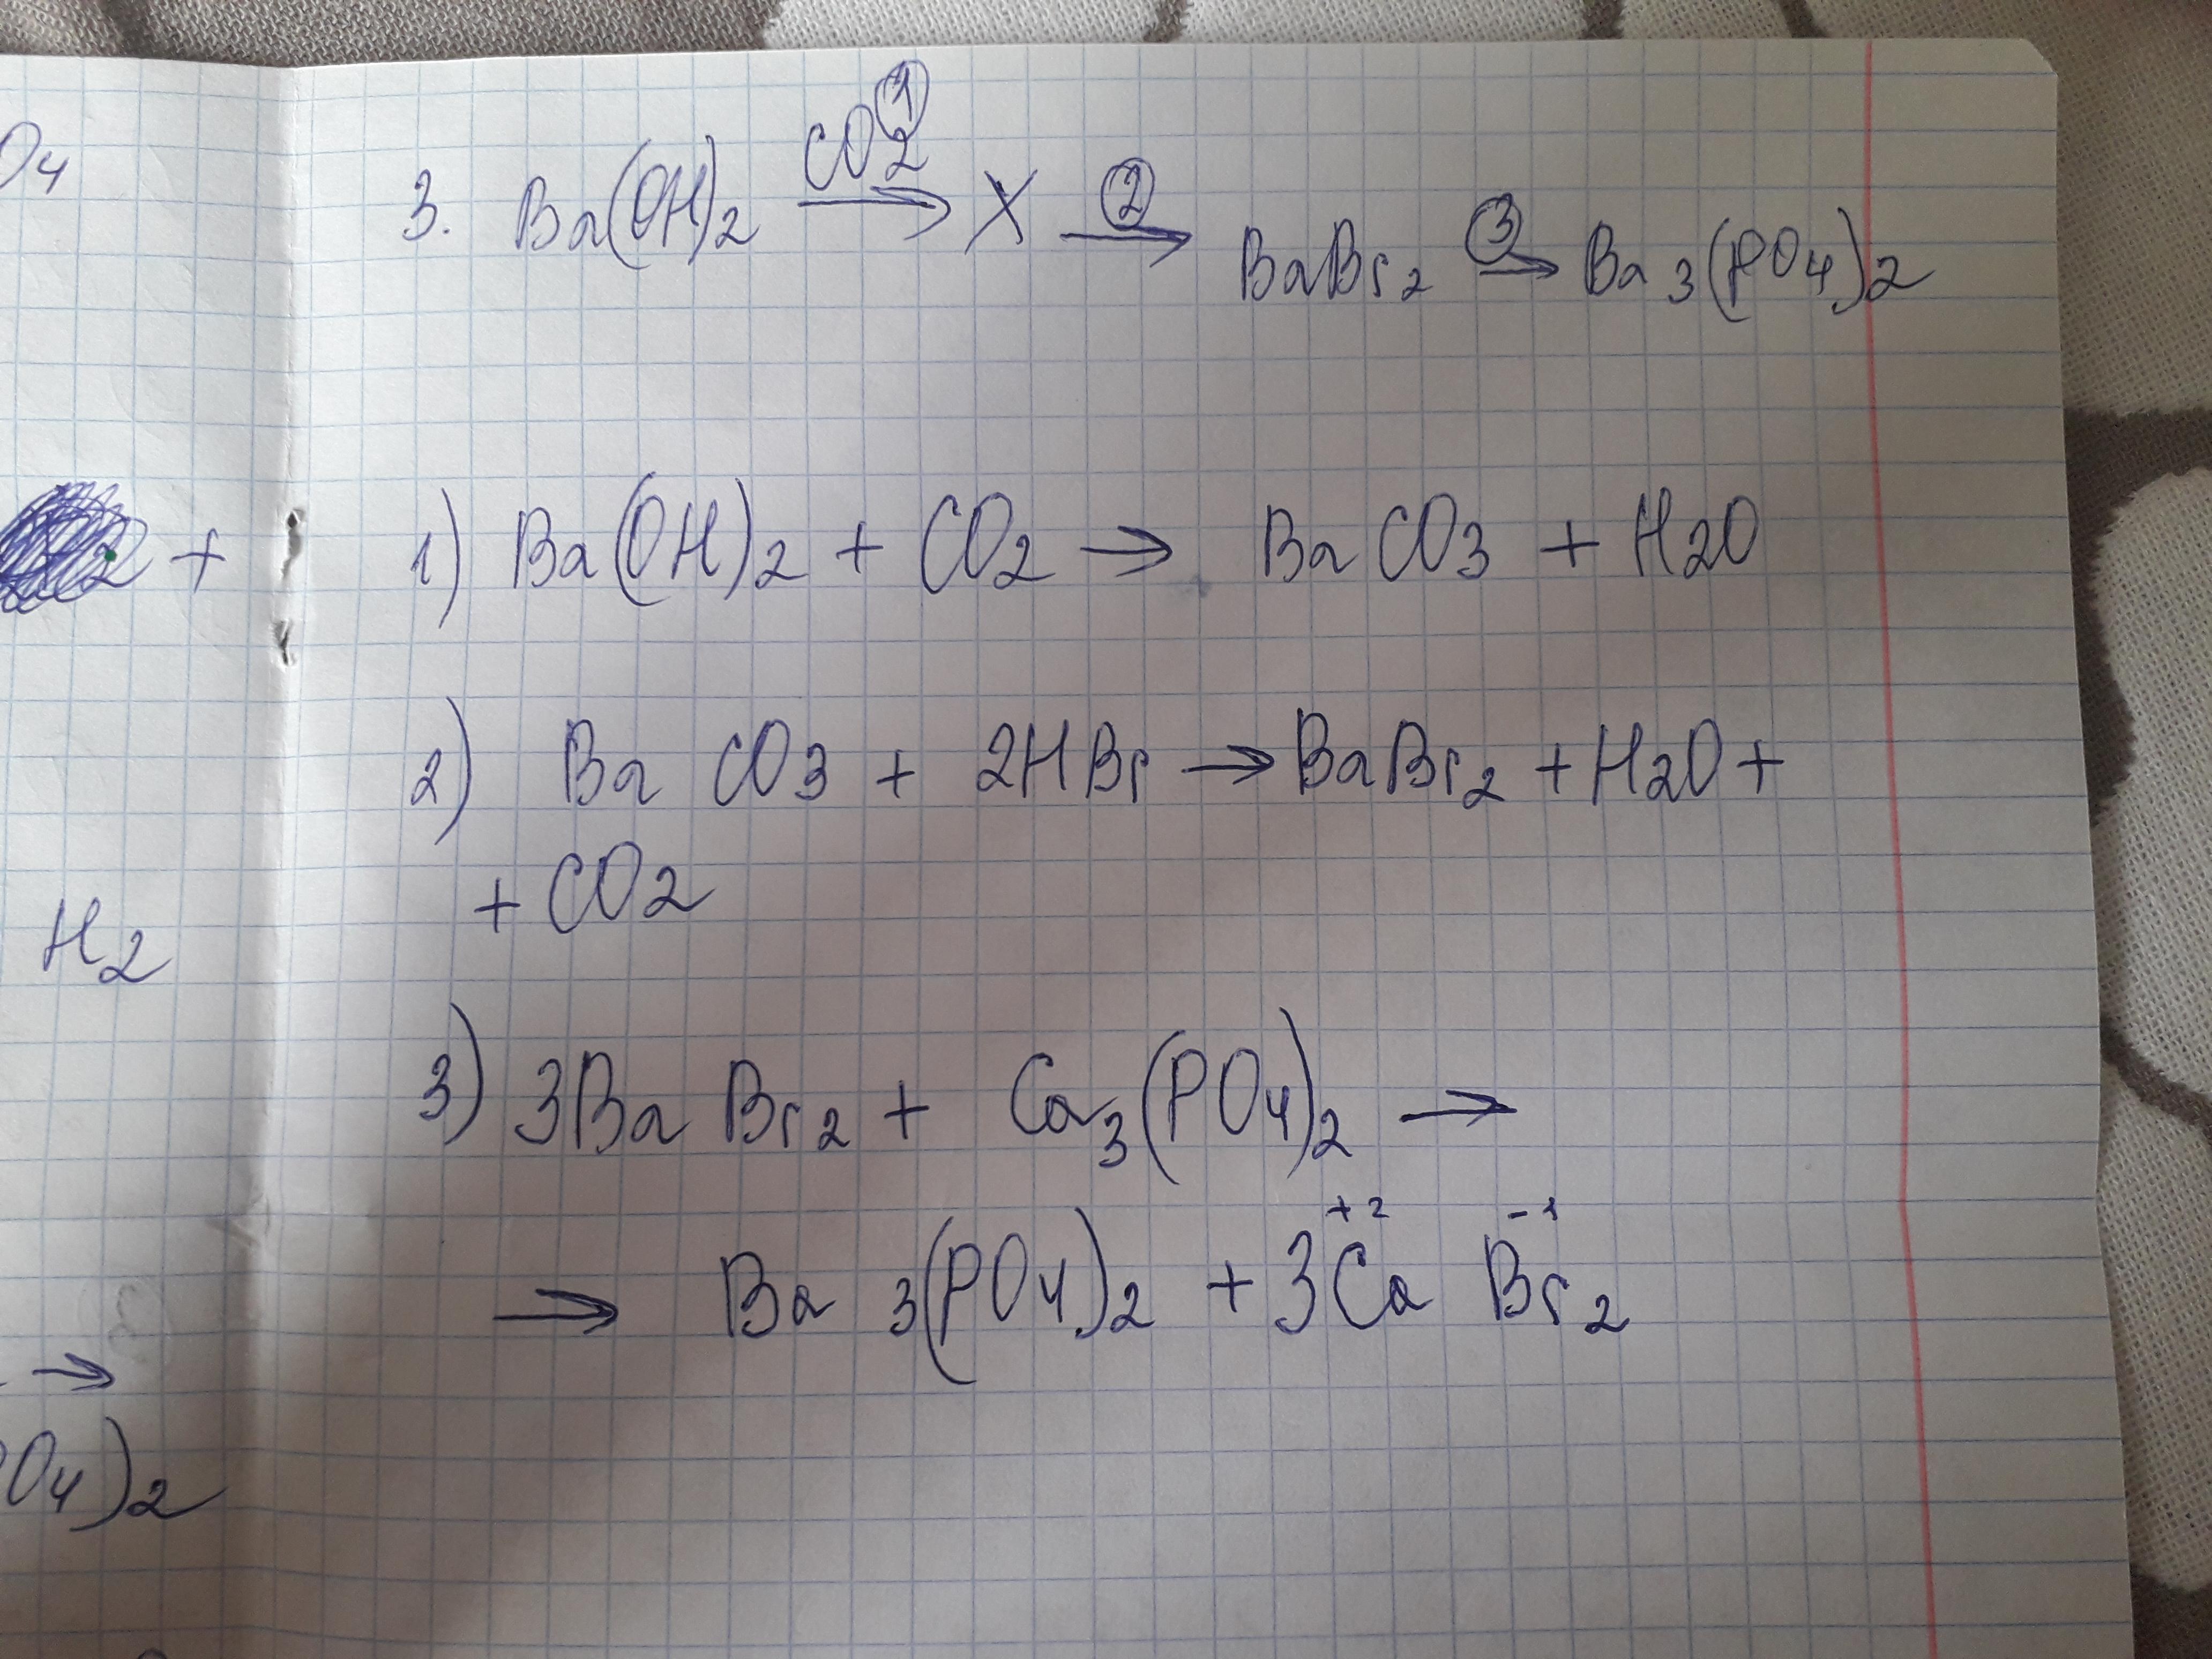 O4
3. Ba(OH)2 CO2 ① → X ② → BaBr2 ③ → Ba3(PO4)2
2 +
1) Ba(OH)2 + CO2 → BaCO3 + H2O
2) BaCO3 + 2HBr → BaBr2 + H2O +
+ CO2
H2
3) 3BaBr2 + Ca3(PO4)2 →
+2 -1
→ Ba3(PO4)2 + 3CaBr2
→
O4)2